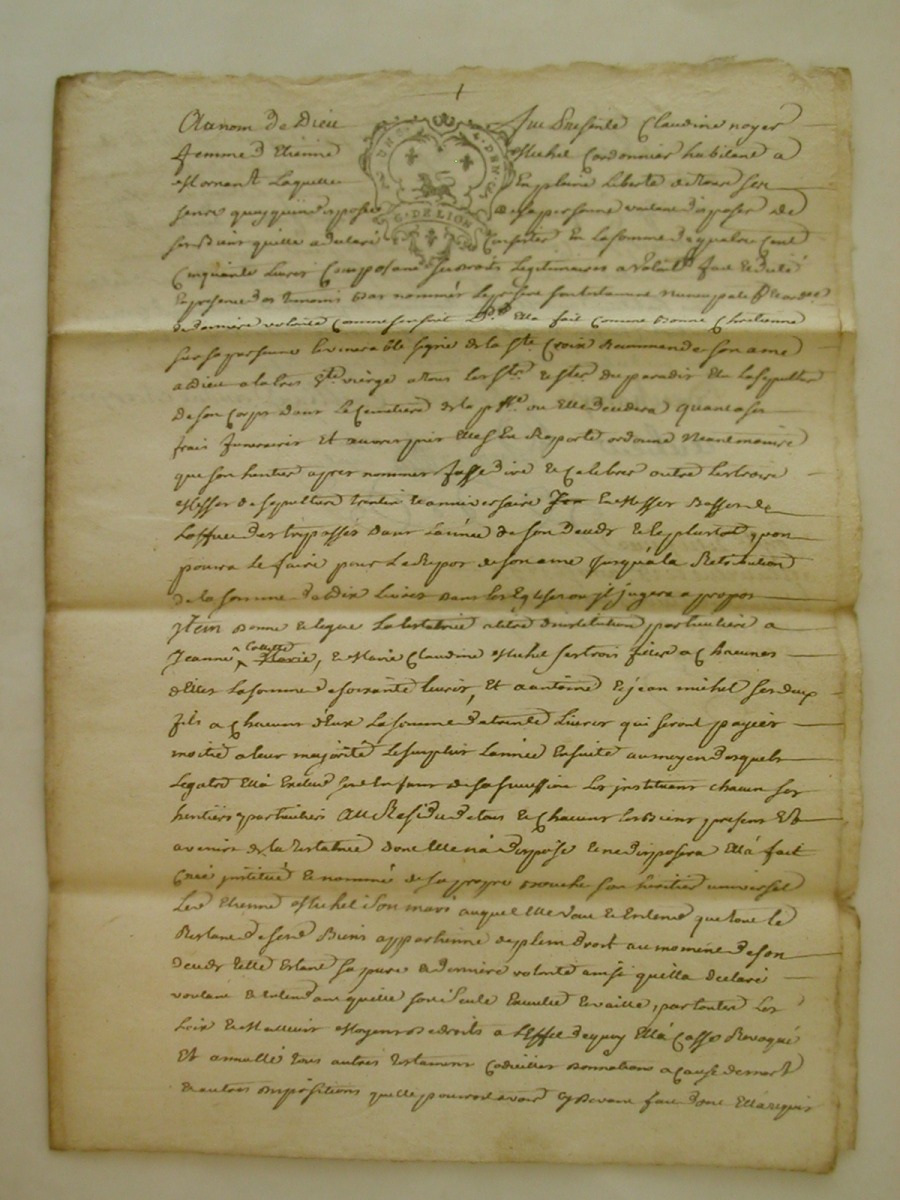 Au nom de Dieu fut presente Claudine noyer
femme d Etienne Michel Cordonnier habitant a
Mornant Laquelle En pleine Liberté de tous ses
sens quoyqu'indisposée de sa personne voulant disposer de
ses Biens quelle a declaré Consister En La somme de quatre Cent
Cinquante Livres Composant ses droits Legitimaires a volonté fait
En presence des temoins bas nommés Le present testament nuncupatif
de derniere volonté comme sensuit Elle fait comme Bonne Chretienne
sur sa personne Le venerable signe de la Ste Croix Recommande son ame
a Dieu a la tres Ste vierge a tous Les Sts & Stes du paradis Et La sepulture
De son Corps dans Le Cemetiere de la psse ou Elle decedera quant a ses
frais funeraires Et Elle sen Raporte ordonne Neantmoins
que son heritier apres nommé fasse dire & Celebrer outre Les trois
Messes de sepulture trentin & anniversaire En Messes Basses de
Loffice des trepassés dans Lannée de son deces & le plustot quon
poura Le faire pour Le Repos de son ame jusqu'a la Retribution
de la somme de dix Livres dans Les Eglises ou jl jugera a propos
jtem donne & legue La testatrice a titre dinstitution particuliere a
Jeanne Colette Marie, & Marie Claudine Michel ses trois filles a Chacune
d'Elles La somme de soixante Livres, Et a antoine & jean michel ses deux
fils a Chacun d'Eux La somme de trente Livres qui seront payées
moitié a leur majorité Le surplus Lannée Ensuite au moyen desquels
Legats Elle Les instituant chacun ses
heritiers particuliers Au Residu de tous & Chacuns Les Biens presents Et
avenir de la testatrice dont Elle n'a disposé & ne disposera Ella fait
Créé institué & nommé de sa propre Bouche son heritier universel
Led Etienne Michel son mari auquel Elle veut & Entend que tout le
Restant de sesd Biens appartienne de plein droit au moment de son
deces telle Etant sa pure & derniere volonté ainsi quella declaré
voulant & Entendant quelle soit seule Executée & vaille, par toutes Les
Loix & Meilleurs Moyens de droits a Leffet dequoy Ella Cassé Revoqué
Et annullé tous autres testaments Codicilles donnations a cause de mort
& autres dispositions quelle pourroit avoir cy devant fait dont Ella requis
UN S DEN
G · DE LION